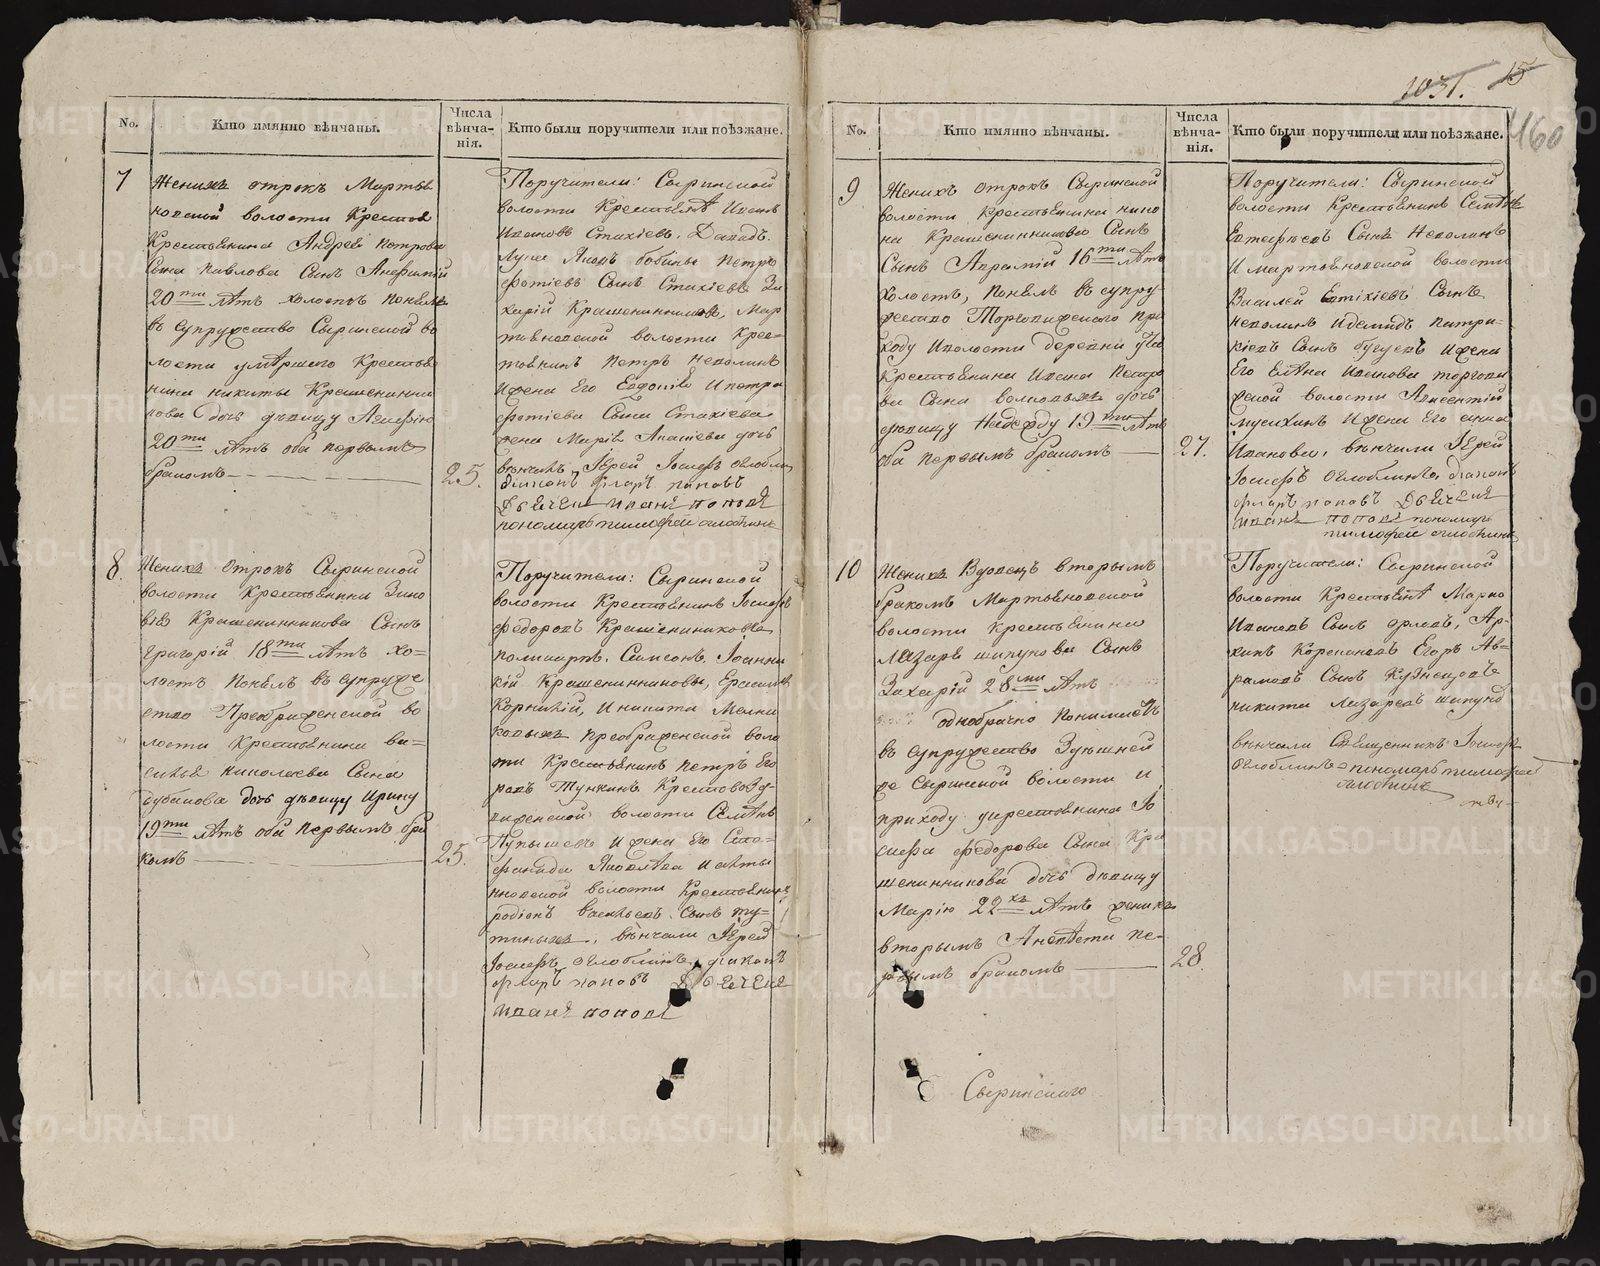 1031. 15
460
No.
Кто имянно вѣнчаны.
Числа
вѣнча-
нія.
Кто были поручители или поѣзжане.
7
Женихъ отрокъ Мартья
новской волости Крестов
Крестьянина Андрея Петрова
Сына Павлова Сынъ
20 ти лѣтъ холостъ понялъ
въ супружество Сыринской во
лости умѣршаго Крестья
нина никиты Крашениннни
кова дочь дѣвицу Агафію
20 ти лѣтъ оба первымъ
бракомъ
25.
Поручители: Сыринской
волости Крестьянѣ Иванъ
Ивановъ Стахіевъ, Давидъ
Лука Яковъ бобины Петръ
фотіевъ Сынъ Стахіевъ За
харій Крашенинниковъ, Мар
тьяновской волости Крес-
тьянинъ Петръ неволинъ
Ижена Его Евдокія Ипетра
фотіева Сына Стахіева
жена Марія дочь
вѣнчалъ Іерей Іосифъ оглоблин
діаконъ флоръ поповъ
Дьячекъ иванъ поповъ
пономарь тимофей оглоблинъ
8.
Женихъ отрокъ Сыринской
волости Крестьянина Зино
вія Крашенинникова Сынъ
григорій 18 ти лѣтъ хо=
лостъ понялъ въ супруже
ство Преображенской во
лости Крестьянина ва=
силья николаева Сына
дубинова дочь дѣвицу Ирину
19 ти лѣтъ оба первымъ бра
комъ
25.
Поручители: Сыринской
волости Крестьянинъ Іосифъ
федоровъ Крашенинниковъ
Самсонъ Іоанни
кій Крашенинниковы, Ерасимъ
Корнилій, И никита Мелни
ковыхъ преображенской воло
сти Крестьянинъ петръ Его
ровъ Тункинъ Крестовозд-
виженской волости Семѣнъ
Пупышевъ Ижена Его Сте=
фанида Яковлева
новской волости Крестьянинъ
родіонъ васильевъ Сынъ ту=
тиныхъ, вѣнчали Іерей
Іосифъ оглоблинъ, діаконъ
флоръ поповъ Дьячекъ
иванъ поповъ
No.
Кто имянно вѣнчаны.
Числа
вѣнча-
нія.
Кто были поручители или поѣзжане.
9
Женихъ отрокъ Сыринской
волости крестьянина нико
на Крашенинникова Сынъ
Сынъ Аврамій 16 ти лѣтъ
холостъ, понялъ въ супру
жество Торговижскаго при
ходу Иволости деревни
Крестьянина Ивана Петро
ва Сына дочь
дѣвицу Надежду 19 ти лѣтъ
оба первымъ бракомъ
27.
Поручители: Сыринской
волости Крестьянинъ Семѣнъ
Евтафьевъ Сынъ Неволинъ
И мартьяновской волости
Василей Евтихіевъ Сынъ
неволинъ Идемидъ патри-
кіевъ Сынъ Ижена
Его Елѣна Иванова торгови
жской волости Авксентій
мусихинъ Ижена Его анна
Иванова, вѣнчали Іерей
Іосифъ оглоблинъ, діаконъ
флоръ поповъ Дьячекъ
иванъ поповъ пономарь
тимофей оглоблинъ
10
Женихъ Вдовецъ вторымъ
бракомъ Мартьяновской
волости крестьянина
Лазаря шипунова Сынъ
Захарій 28 ми лѣтъ
однобрачно понимаетъ
въ супружество Здѣшней
же Сыринской волости и
приходу крестьянина Іо
сифа федорова Сына Кра
шенинникова дочь дѣвицу
Марію 22 хъ лѣтъ женихъ
вторымъ Аневѣста пе-
рвымъ бракомъ
28.
Поручители: Сыринской
волости Крестьянѣ Марко
Ивановъ Сынъ орловъ, Ар-
хипъ Егоръ Ав=
рамовъ Сынъ Кузнецовъ
никита Лазаревъ шипунов
вѣнчали Священникъ Іосифъ
оглоблинъ пономарь тимофей
оглоблинъ
Сыринскаго